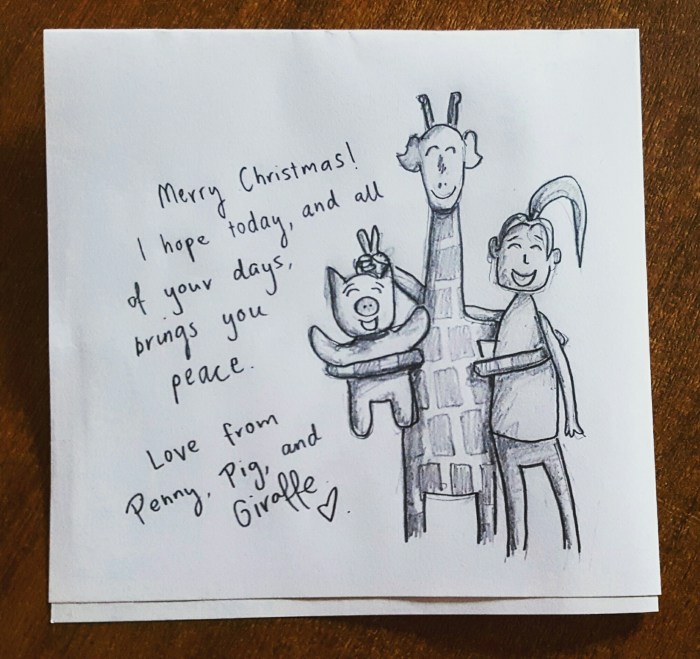 Merry Christmas!
I hope today, and all
of your days,
brings you
peace.
Love from
Penny, Pig, and
Giraffe ♡.